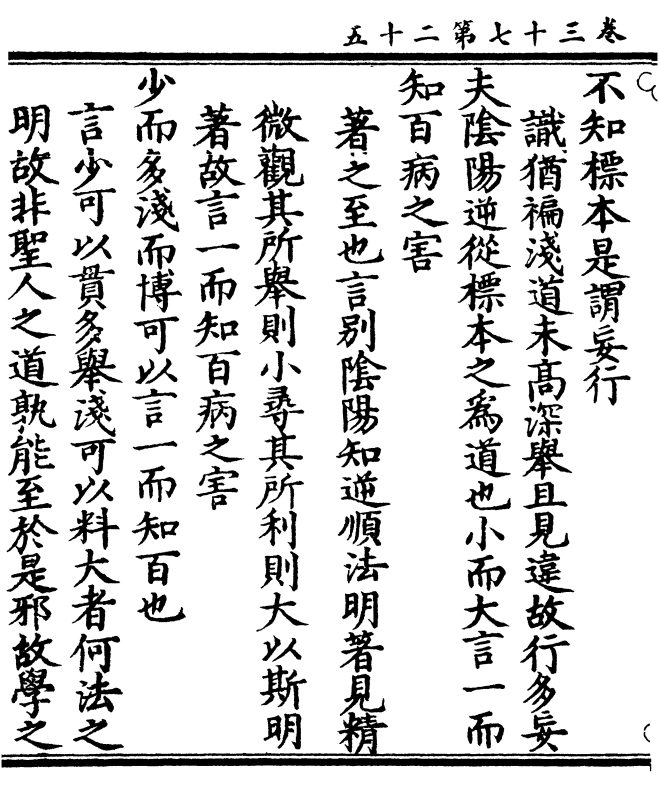 卷三十七第二十五
不知標本是謂妄行
識猶褊淺道未髙深舉且見違故行多妄
夫陰陽逆從標本之爲道也小而大言一而
知百病之害
著之至也言別陰陽知逆順法明著見精
微觀其所舉則小尋其所利則大以斯明
著故言一而知百病之害
少而多淺而博可以言一而知百也
言少可以貫多舉淺可以料大者何法之
明故非聖人之道孰能至於是邪故學之